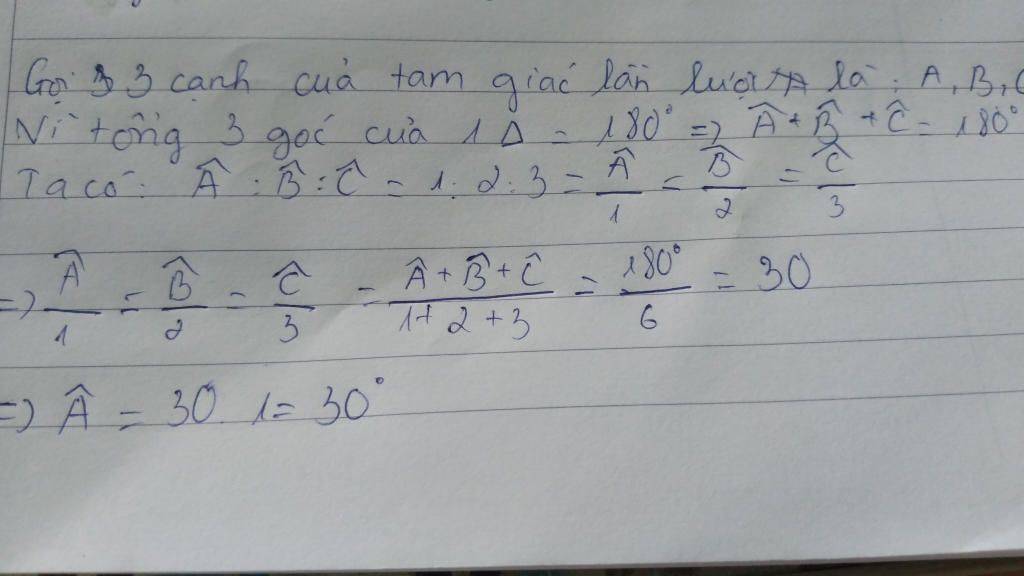 Gọi 3 cạnh của tam giác lần lượt là: A, B, C
Vì tổng 3 góc của 1 Δ = 180° => Â + B̂ + Ĉ = 180°
Ta có: Â : B̂ : Ĉ = 1 : 2 : 3 = Â/1 = B̂/2 = Ĉ/3
=> Â/1 = B̂/2 = Ĉ/3 = Â + B̂ + Ĉ/1 + 2 + 3 = 180°/6 = 30
=> Â = 30 . 1 = 30°